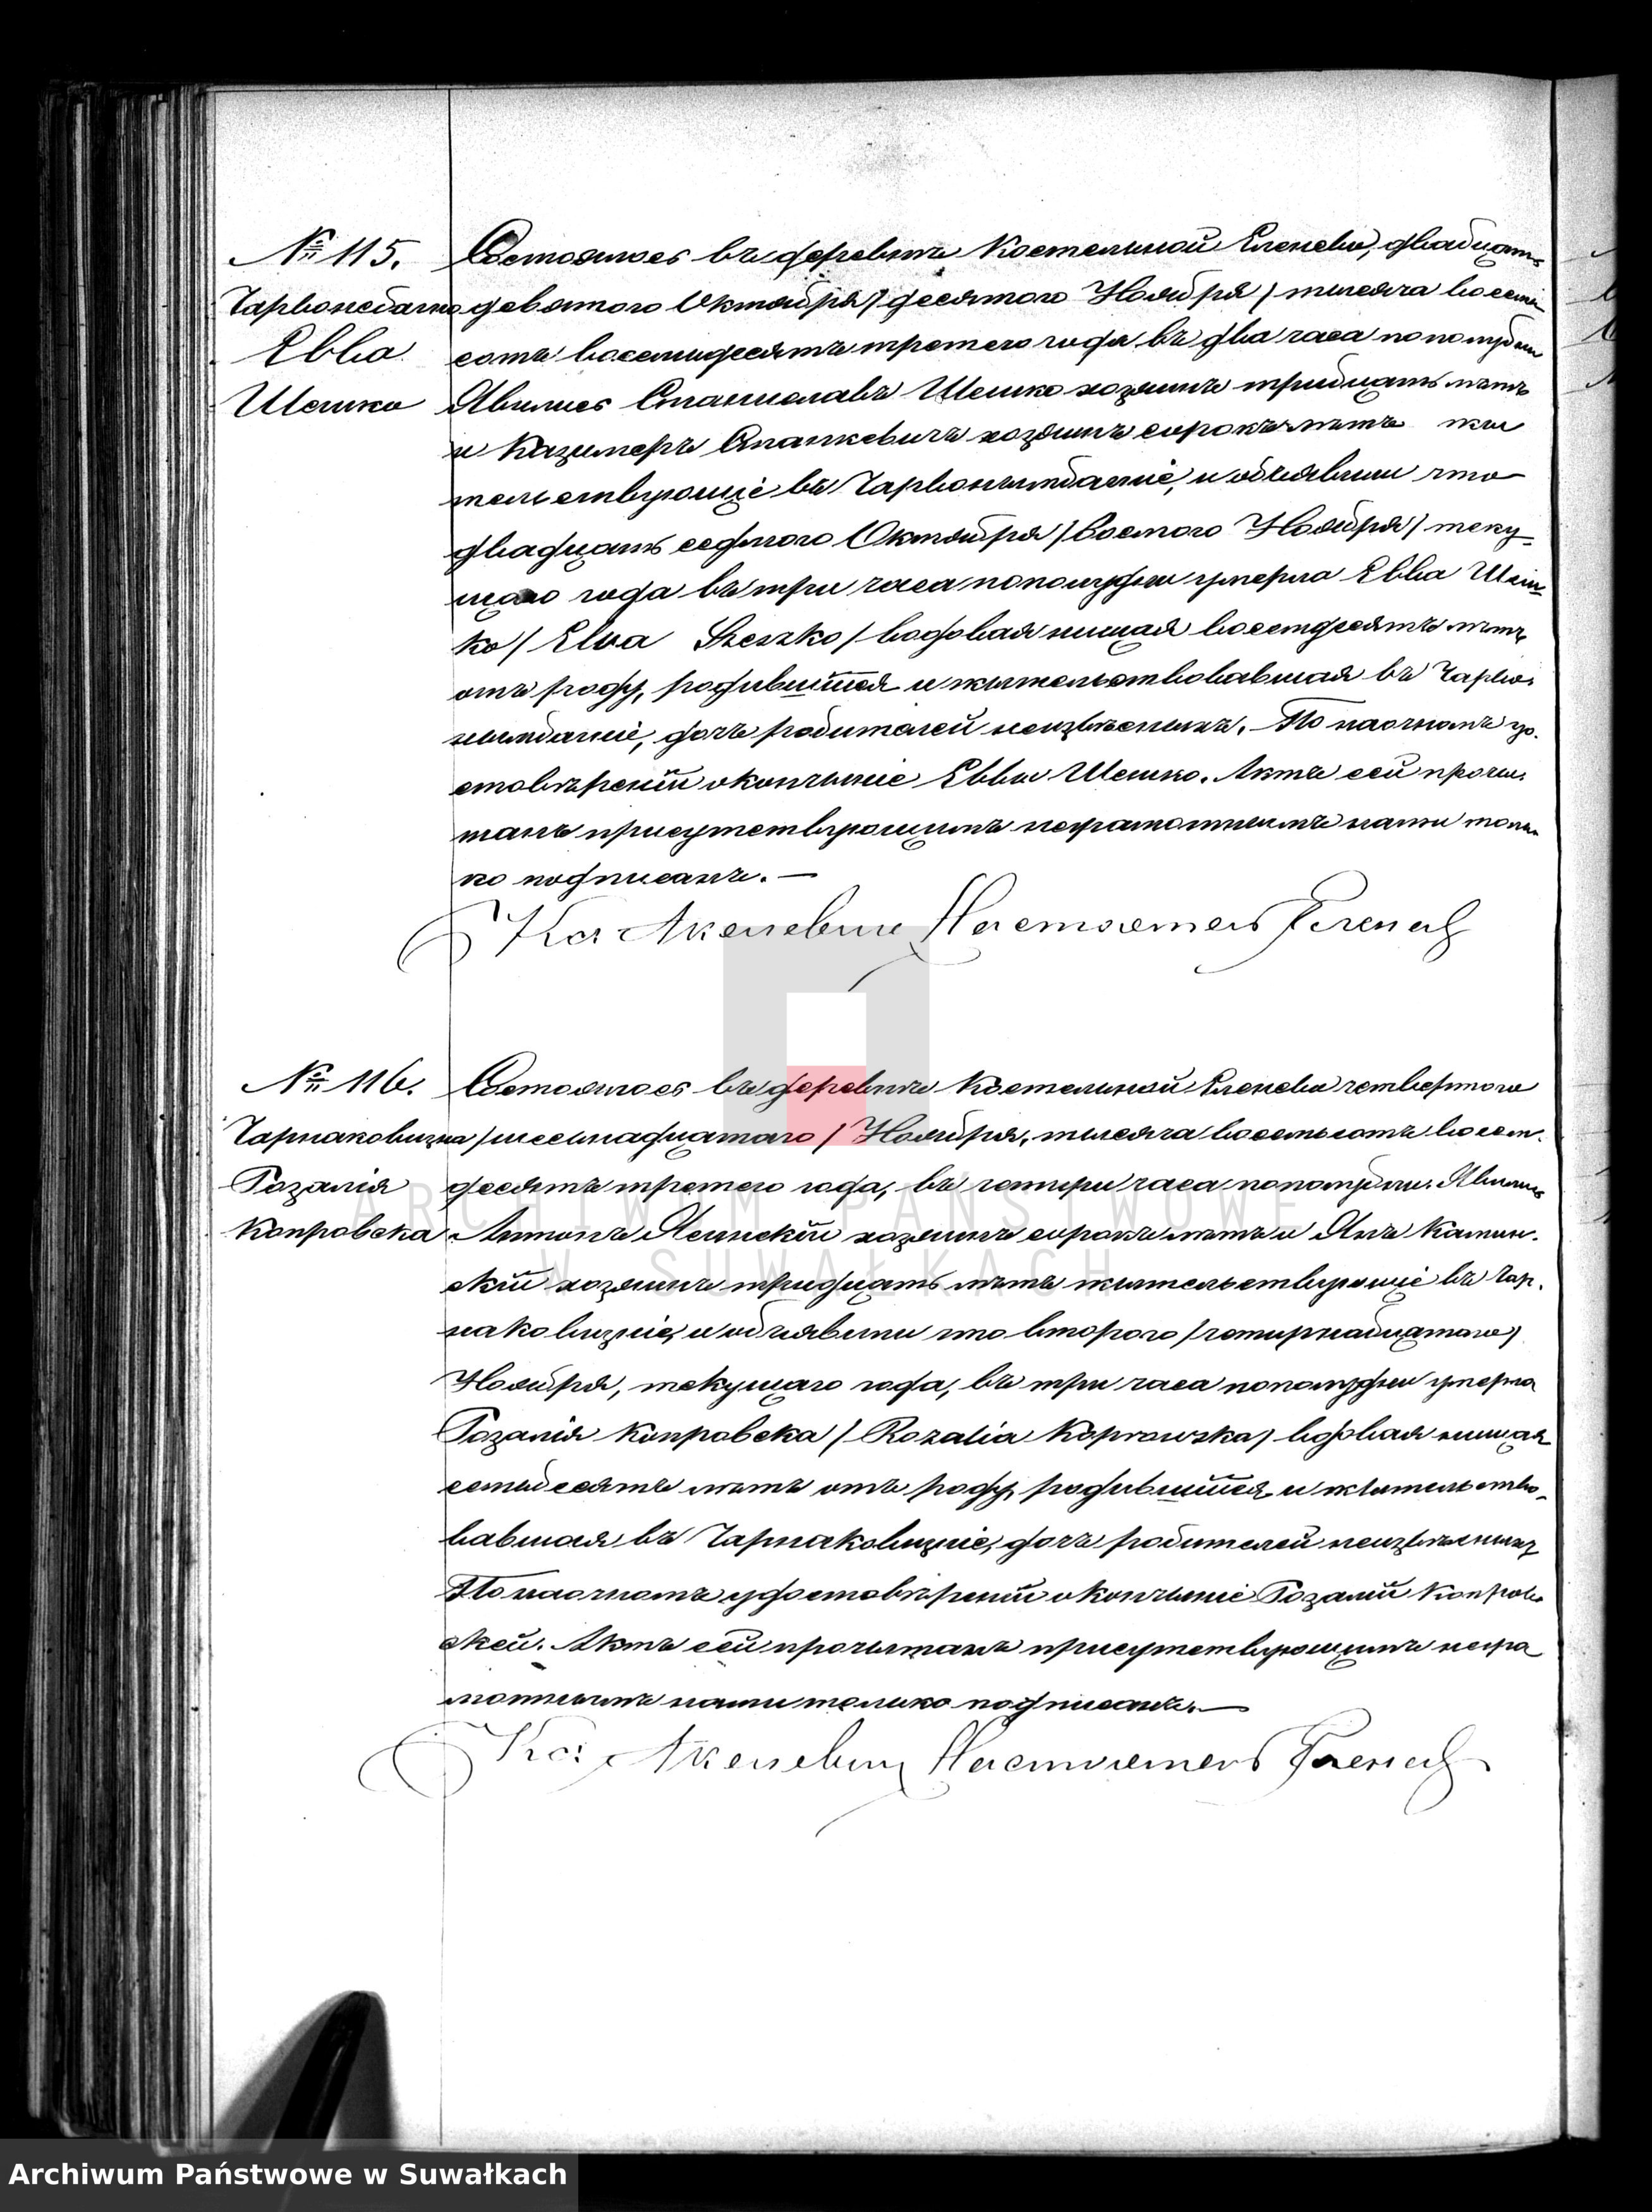 № 115.
Чарвонебагно
Евва
Шешко
Состоялось въ деревнѣ Костельной Еленева, двадцать
девятого Октября / десятого Ноября / тысяча восемь
сотъ восемьдесятъ третего года въ два часа пополудни
Явились Станиславъ Шешко хозяинъ тридцать лѣтъ
и Казимеръ Станкевичъ хозяинъ сорокъ лѣтъ жы
тельствующіе въ Чарвонымбагніе, и объявили что
двадцать седмого Октября / восмого Ноября / теку-
щаго года въ три часа пополудни умерла Евва Шеш-
ко / Elva Szeszko / вдовая нищая восемдесятъ лѣтъ
отъ роду, родившаяся и жытельствовавшая въ Чарво-
нымбагніе, дочъ родителей неизвѣсныхъ. По наочномъ удо-
стовѣреніи окончыніе Еввы Шешко. Актъ сей прочы-
танъ присутствующимъ неграмотнымъ нами толь-
ко подписанъ. —
Кс. Акелевич Настоятель Еленев
№ 116.
Чарнаковизна
Розалія
Копровска
Состоялось въ деревнѣ Костельной Еленева четвертого
/ шеснадцатого / Ноября, тысяча восемьсотъ восем-
десятъ третего года, въ чотыри часа пополудни. Явились
Антонъ Ясинскій хозяинъ сорокъ лѣтъ и Янъ Камин-
скій хозяинъ тридцать лѣтъ жытельствующіе въ Чар-
наковизніе, и объявили что второго / чотырнадцатого /
Ноября, текущаго года, въ три часа пополудни умерла
Розалія Копровска / Rozalia Koprowzka / вдовая нищая
семьдесятъ лѣтъ отъ роду, родившаяся и жытельство-
вавшая въ Чарнаковизніе, дочъ родителей неизвѣсныхъ
По наочномъ удостовѣреніи окончыніе Розаліи Копров-
ской. Актъ сей прочытанъ присутствующимъ негра
мотнымъ нами только подписанъ. —
Кс. Акелевич Настоятель Еленев
ARCHIWUM PAŃSTWOWE
W SUWAŁKACH
Archiwum Państwowe w Suwałkach